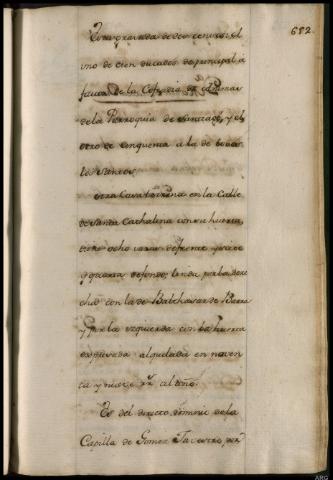 682
Esta gravada de dos censos: el
uno de cien ducados de principal a
favor de la Cofradia de Animas
de la Parroquia de Santiago, y el
otro de cinquenta a la de
los Santos.
Otra Casa terrena en la Calle
de Santa Cathalina con su huerta,
tiene ocho varas de frente
y quarta de fondo, linda por la dere
cha con la de Balthasar de
y por la izquierda con la huerta
expresada alquilada en noven
ta y nueve rr.s al año.
Es del directo dominio de la
Capilla de Gomez
ARG